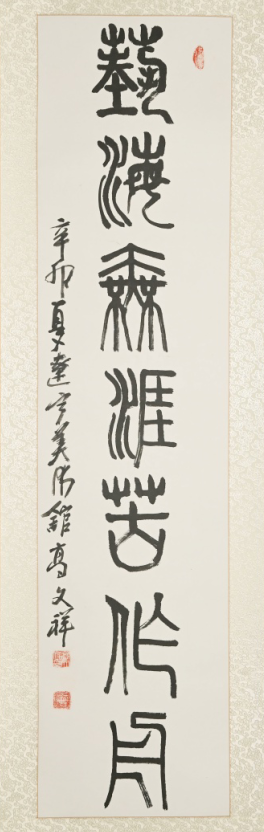 藝海無涯苦作舟
辛卯夏遼寧美術館高文祥